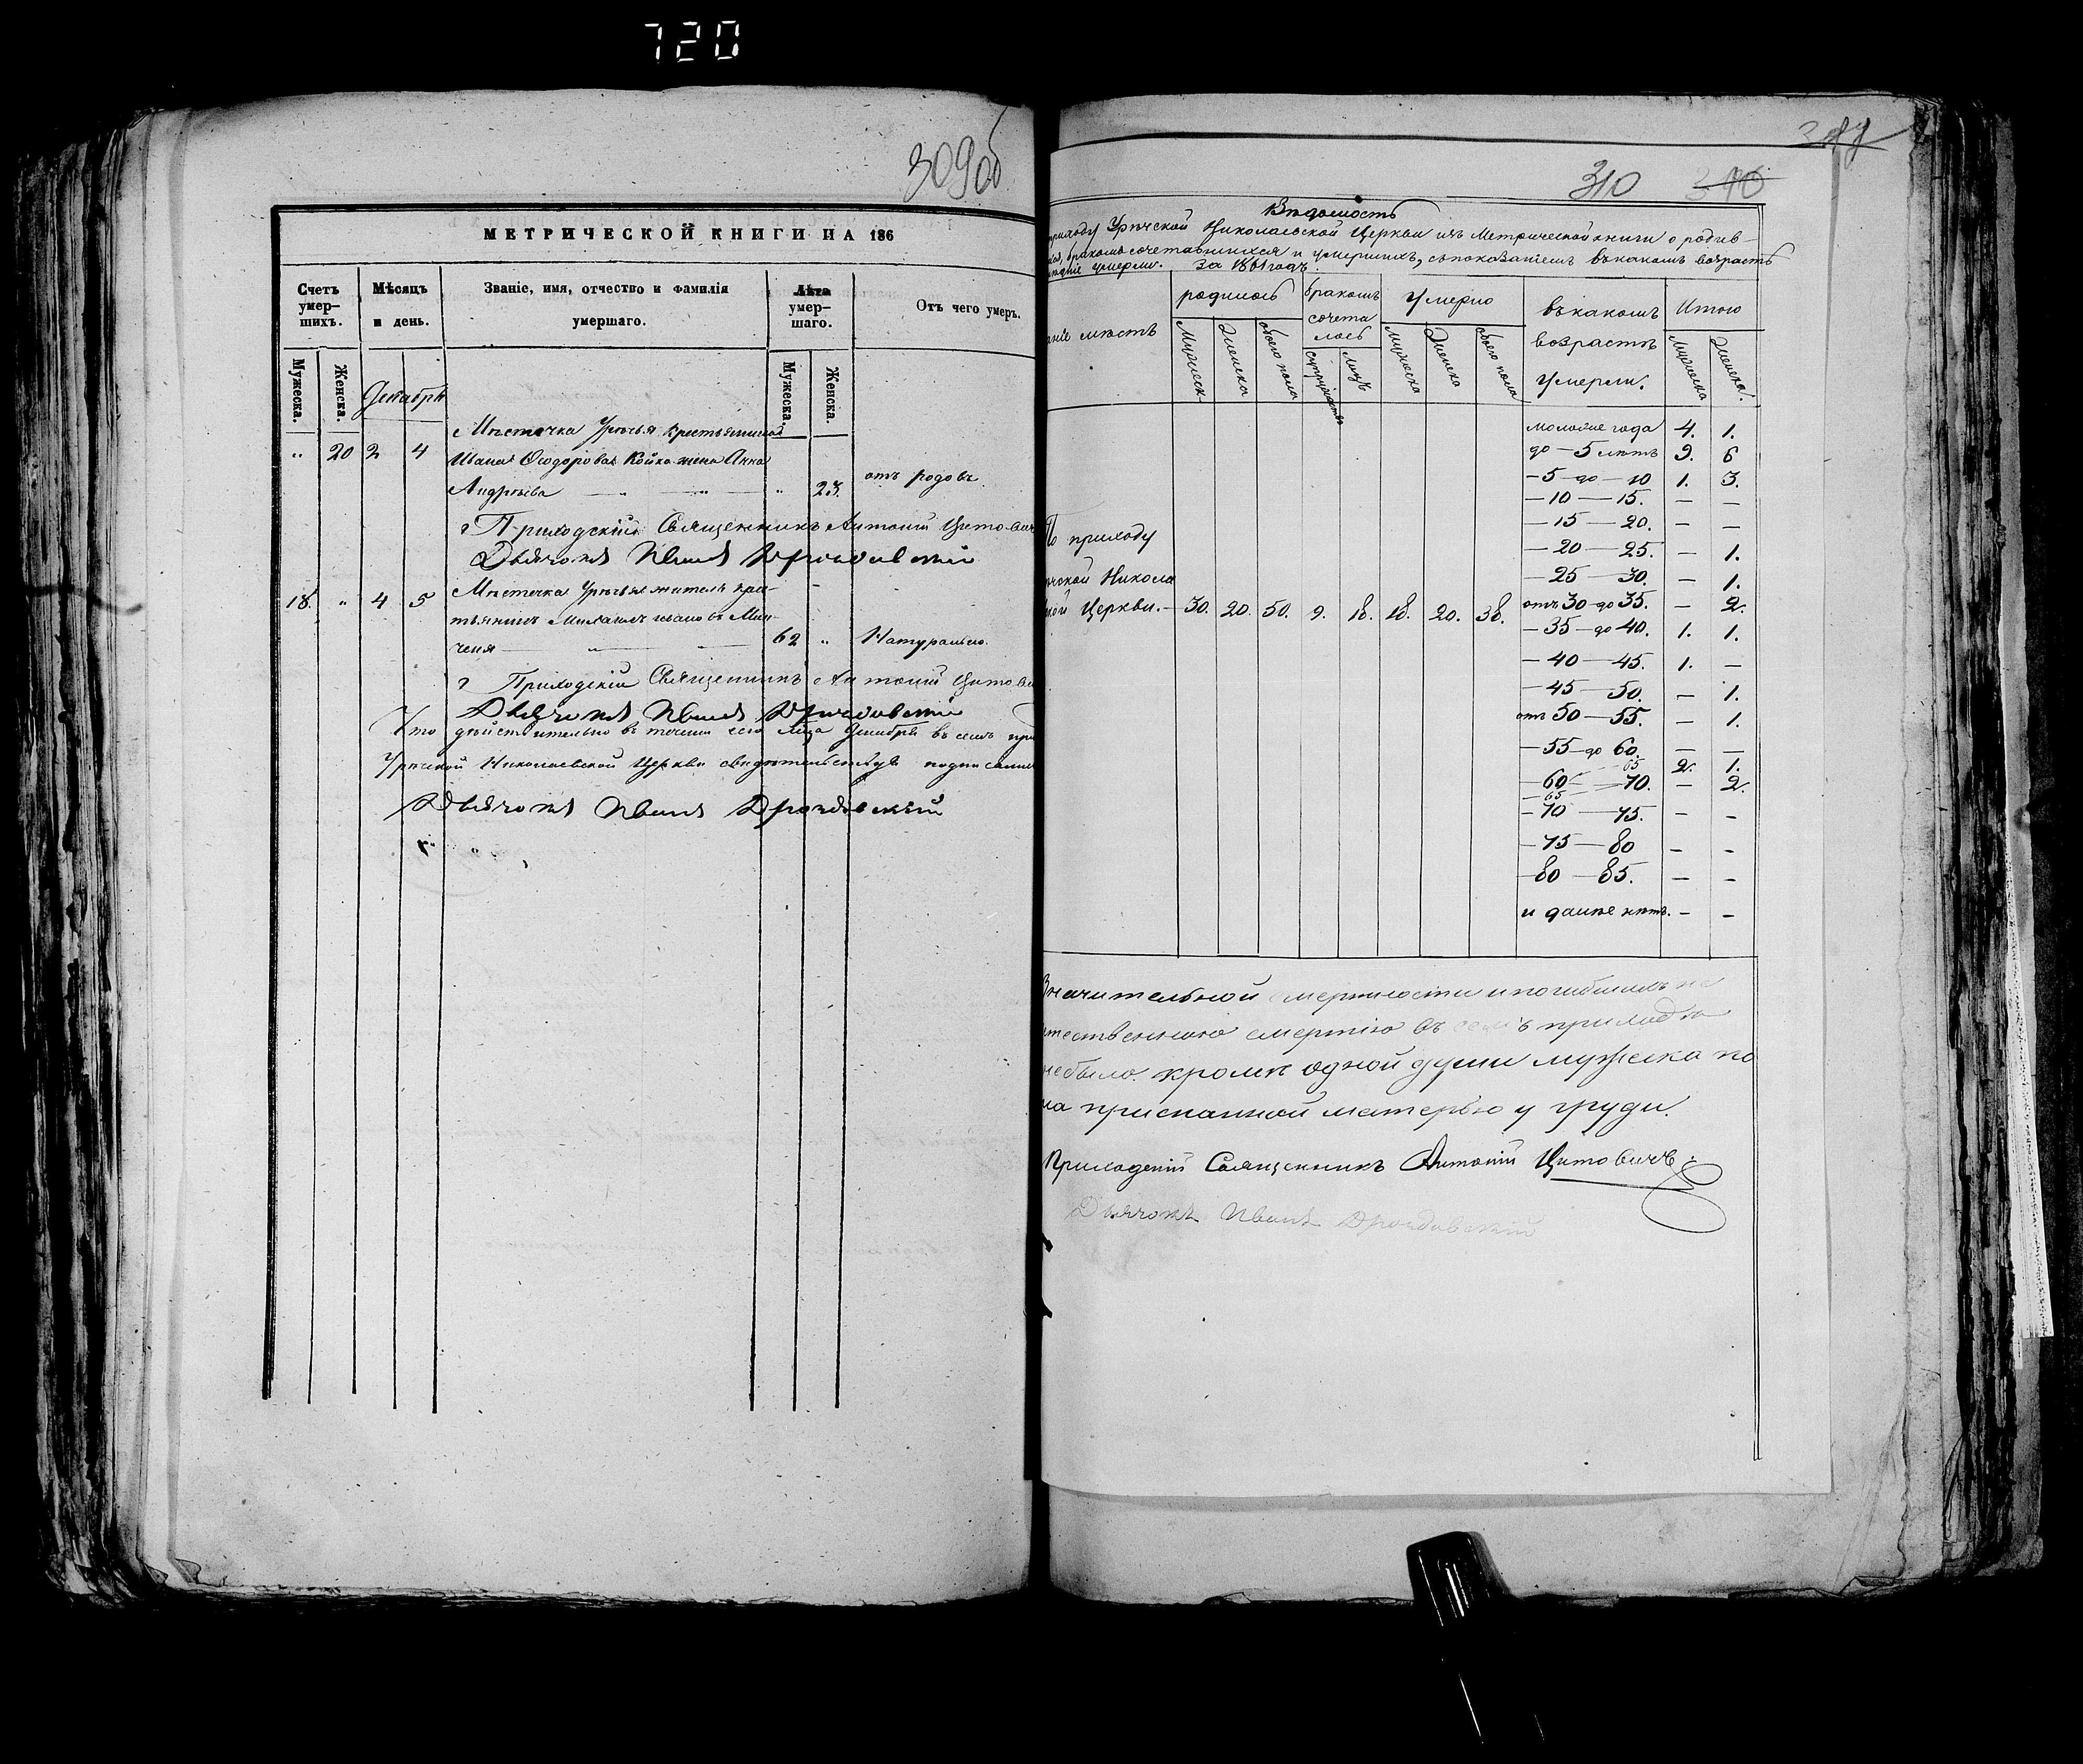 720
309об
МЕТРИЧЕСКОЙ КНИГИ НА 186
Счетъ умер-шихъ.
Мѣсяцъ и день.
Званіе, имя, отчество и фамилія умершаго.
Лѣта умер-шаго.
Отъ чего умеръ.
Мужеска.
Женска.
Декабрь
Мужеска.
Женска.
Мѣстечка Урѣчья крестьянина
" 20 2 4 Ивана Ѳеодорова Койко жена Анна
Андрѣева " " 23. отъ родовъ.
Приходскій Священникъ Антоній Цитович
Дьячокъ Иванъ Дроздовскій
Мѣстечка Урѣчья житель кре-
18. " 4 5 стьянинъ Михаилъ Ивановъ
62 " Натурально.
Приходскій Священникъ Антоній Цитови
Дьячокъ Иванъ Дроздовскій
Что дѣйствительно въ теченіи сего м-ца Декабря въ семъ при
Урѣчской Николаевской Церкви подписомъ
Дьячокъ Иванъ Дроздовскій
310
Вѣдомость
приходу Урѣчской Николаевской Церкви изъ Метрической книги о родив-
бракомъ сочетавшихся и умершихъ, съ показаніемъ въ какомъ возрастѣ
умерли. За 1861 годъ.
родилось
бракомъ сочета лось
Умерло
въ какомъ возрастѣ умерли.
Итого
мѣстъ
Мужеск.
Женска
обоего пола
супружествъ
лицъ
мужеска
Женска
обоего пола
Мужеска
Женска.
моложе года 4. 1.
до - 5 лѣтъ 9. 6
- 5 до - 10 1. 3.
- 10 - 15. - -
- 15 - 20. - -
- 20 - 25. - 1.
- 25 - 30. - 1.
отъ 30 до 35. - 2.
- 35 - до 40. 1. 1.
- 40 - 45. 1. -
- 45 - 50. - 1.
отъ 50 - 55. - 1.
- 55 до 60. - -
- 60 - 65 2. 1.
- 65 - 70. - 2.
- 70 - 75. - -
- 75 - 80 - -
- 80 - 85. - -
и далѣе нѣтъ. - -
По приходу
Никола
Церкви. - 30. 20. 50. 9. 18. 18. 20. 38.
Значительной смертности и погибшихъ не
естественною смертію въ семъ приходѣ
небыло. кромѣ одной души мужеска по
ла приспанной матерью у груди.
Приходскій Священникъ Антоній Цитовичъ.
Дьячокъ Иванъ Дроздовскій